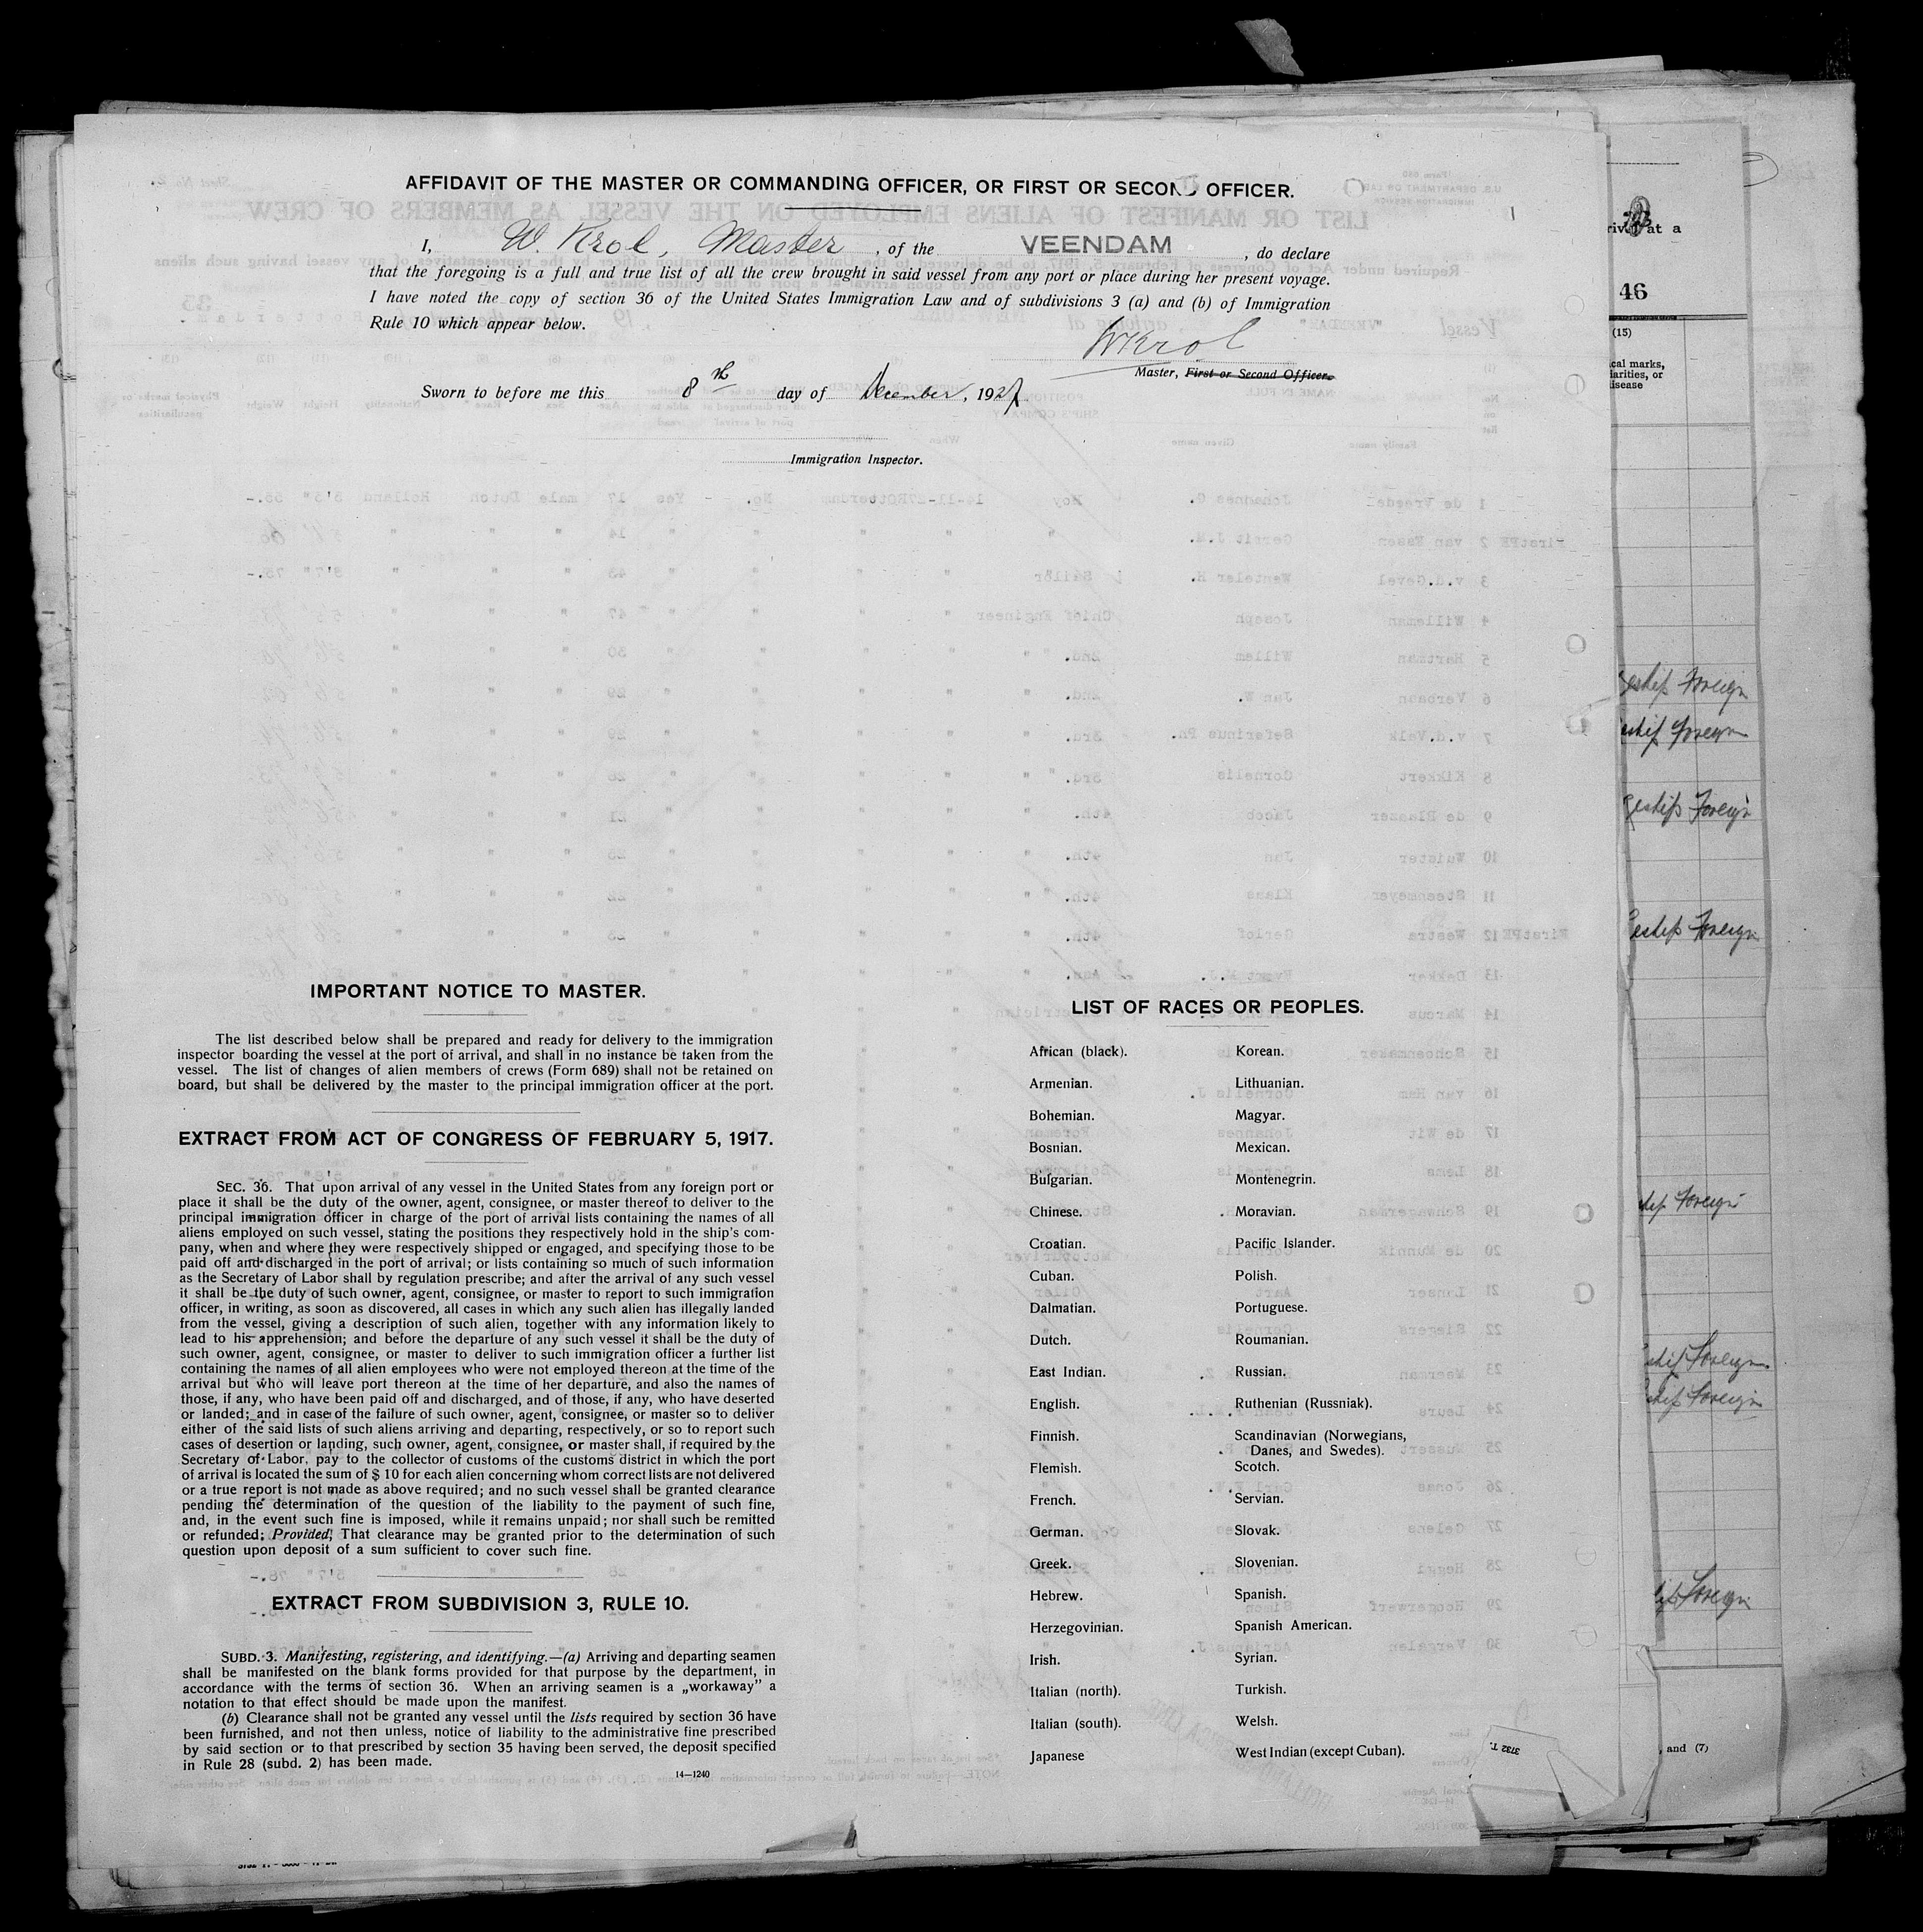 AFFIDAVIT OF THE MASTER OR COMMANDING OFFICER, OR FIRST OR SECOND OFFICER.
I, W. Krol, Master, of the VEENDAM, do declare
that the foregoing is a full and true list of all the crew brought in said vessel from any port or place during her present voyage.
I have noted the copy of section 36 of the United States Immigration Law and of subdivisions 3 (a) and (b) of Immigration
Rule 10 which appear below.
WKrol
Master, First or Second Officer.
Sworn to before me this 8th day of December, 1927.
Immigration Inspector.
IMPORTANT NOTICE TO MASTER.
The list described below shall be prepared and ready for delivery to the immigration
inspector boarding the vessel at the port of arrival, and shall in no instance be taken from the
vessel. The list of changes of alien members of crews (Form 689) shall not be retained on
board, but shall be delivered by the master to the principal immigration officer at the port.
EXTRACT FROM ACT OF CONGRESS OF FEBRUARY 5, 1917.
SEC. 36. That upon arrival of any vessel in the United States from any foreign port or
place it shall be the duty of the owner, agent, consignee, or master thereof to deliver to the
principal immigration officer in charge of the port of arrival lists containing the names of all
aliens employed on such vessel, stating the positions they respectively hold in the ship's com-
pany, when and where they were respectively shipped or engaged, and specifying those to be
paid off and discharged in the port of arrival; or lists containing so much of such information
as the Secretary of Labor shall by regulation prescribe; and after the arrival of any such vessel
it shall be the duty of such owner, agent, consignee, or master to report to such immigration
officer, in writing, as soon as discovered, all cases in which any such alien has illegally landed
from the vessel, giving a description of such alien, together with any information likely to
lead to his apprehension; and before the departure of any such vessel it shall be the duty of
such owner, agent, consignee, or master to deliver to such immigration officer a further list
containing the names of all alien employees who were not employed thereon at the time of the
arrival but who will leave port thereon at the time of her departure, and also the names of
those, if any, who have been paid off and discharged, and of those, if any, who have deserted
or landed; and in case of the failure of such owner, agent, consignee, or master so to deliver
either of the said lists of such aliens arriving and departing, respectively, or so to report such
cases of desertion or landing, such owner, agent, consignee, or master shall, if required by the
Secretary of Labor, pay to the collector of customs of the customs district in which the port
of arrival is located the sum of $ 10 for each alien concerning whom correct lists are not delivered
or a true report is not made as above required; and no such vessel shall be granted clearance
pending the determination of the question of the liability to the payment of such fine,
and, in the event such fine is imposed, while it remains unpaid; nor shall such be remitted
or refunded; Provided, That clearance may be granted prior to the determination of such
question upon deposit of a sum sufficient to cover such fine.
EXTRACT FROM SUBDIVISION 3, RULE 10.
SUBD. 3. Manifesting, registering, and identifying.—(a) Arriving and departing seamen
shall be manifested on the blank forms provided for that purpose by the department, in
accordance with the terms of section 36. When an arriving seamen is a „workaway” a
notation to that effect should be made upon the manifest.
(b) Clearance shall not be granted any vessel until the lists required by section 36 have
been furnished, and not then unless, notice of liability to the administrative fine prescribed
by said section or to that prescribed by section 35 having been served, the deposit specified
in Rule 28 (subd. 2) has been made.
14—1240
LIST OF RACES OR PEOPLES.
African (black).
Armenian.
Bohemian.
Bosnian.
Bulgarian.
Chinese.
Croatian.
Cuban.
Dalmatian.
Dutch.
East Indian.
English.
Finnish.
Flemish.
French.
German.
Greek.
Hebrew.
Herzegovinian.
Irish.
Italian (north).
Italian (south).
Japanese
Korean.
Lithuanian.
Magyar.
Mexican.
Montenegrin.
Moravian.
Pacific Islander.
Polish.
Portuguese.
Roumanian.
Russian.
Ruthenian (Russniak).
Scandinavian (Norwegians,
Danes, and Swedes).
Scotch.
Servian.
Slovak.
Slovenian.
Spanish.
Spanish American.
Syrian.
Turkish.
Welsh.
West Indian (except Cuban).
3732 T.
at a
46
(15)
cal marks,
iarities, or
disease
Foreign
Foreign
Foreign
Foreign
Foreign
Foreign
Foreign
Foreign
, and (7)